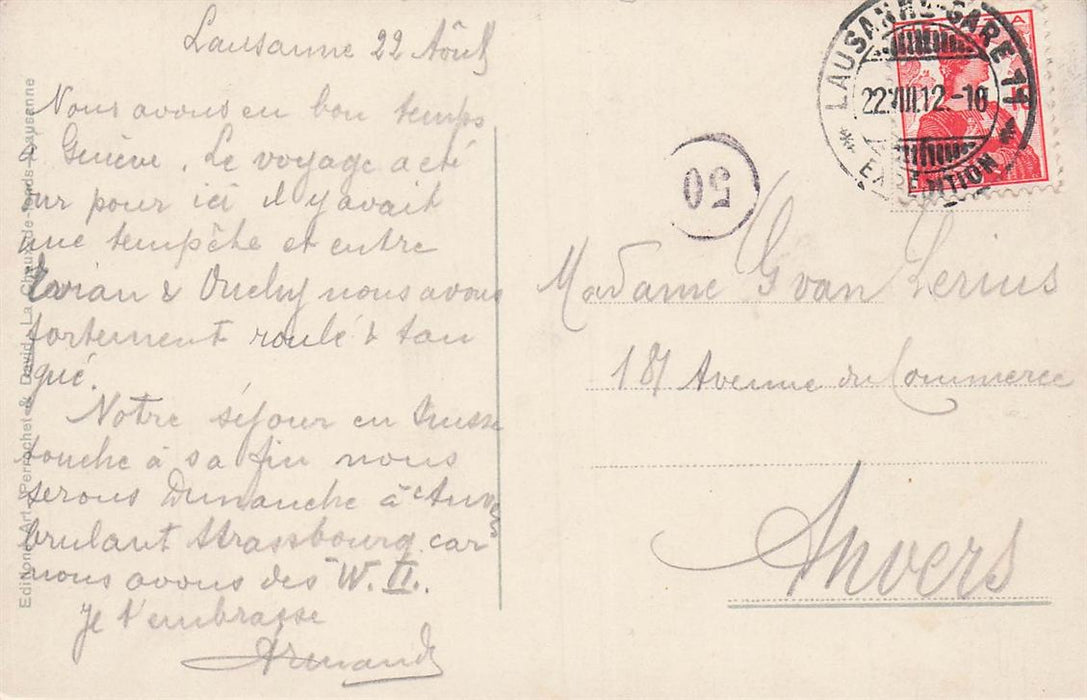 Lausanne 22 Août
Nous avons eu bon temps
à Genève. Le voyage a été
dur pour ici il y avait
une tempête et entre
Evian & Ouchy nous avons
fortement roulé & tan
gué.
Notre séjour en Suisse
touche à sa fin nous
serons Dimanche à Anvers
brulant Strassbourg car
nous avons des W. II.
Je t'embrasse
Armand
Editions Art. Perrochet & David, La Chaux-de-fonds-Lausanne
LAUSANNE-GARE 11
22.VIII.12.-18
EXPEDITION
50
Madame G van Lerius
181 Avenue du Commerce
Anvers